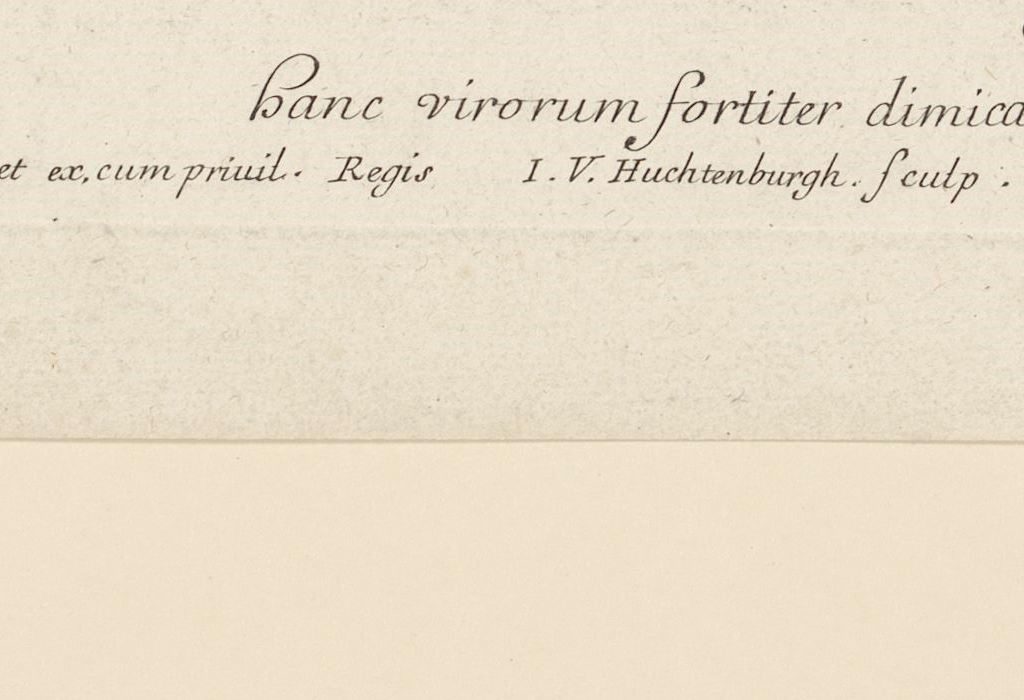 hanc virorum fortiter dimica
et ex, cum priuil. Regis I. V. Huchtenburgh. sculp.